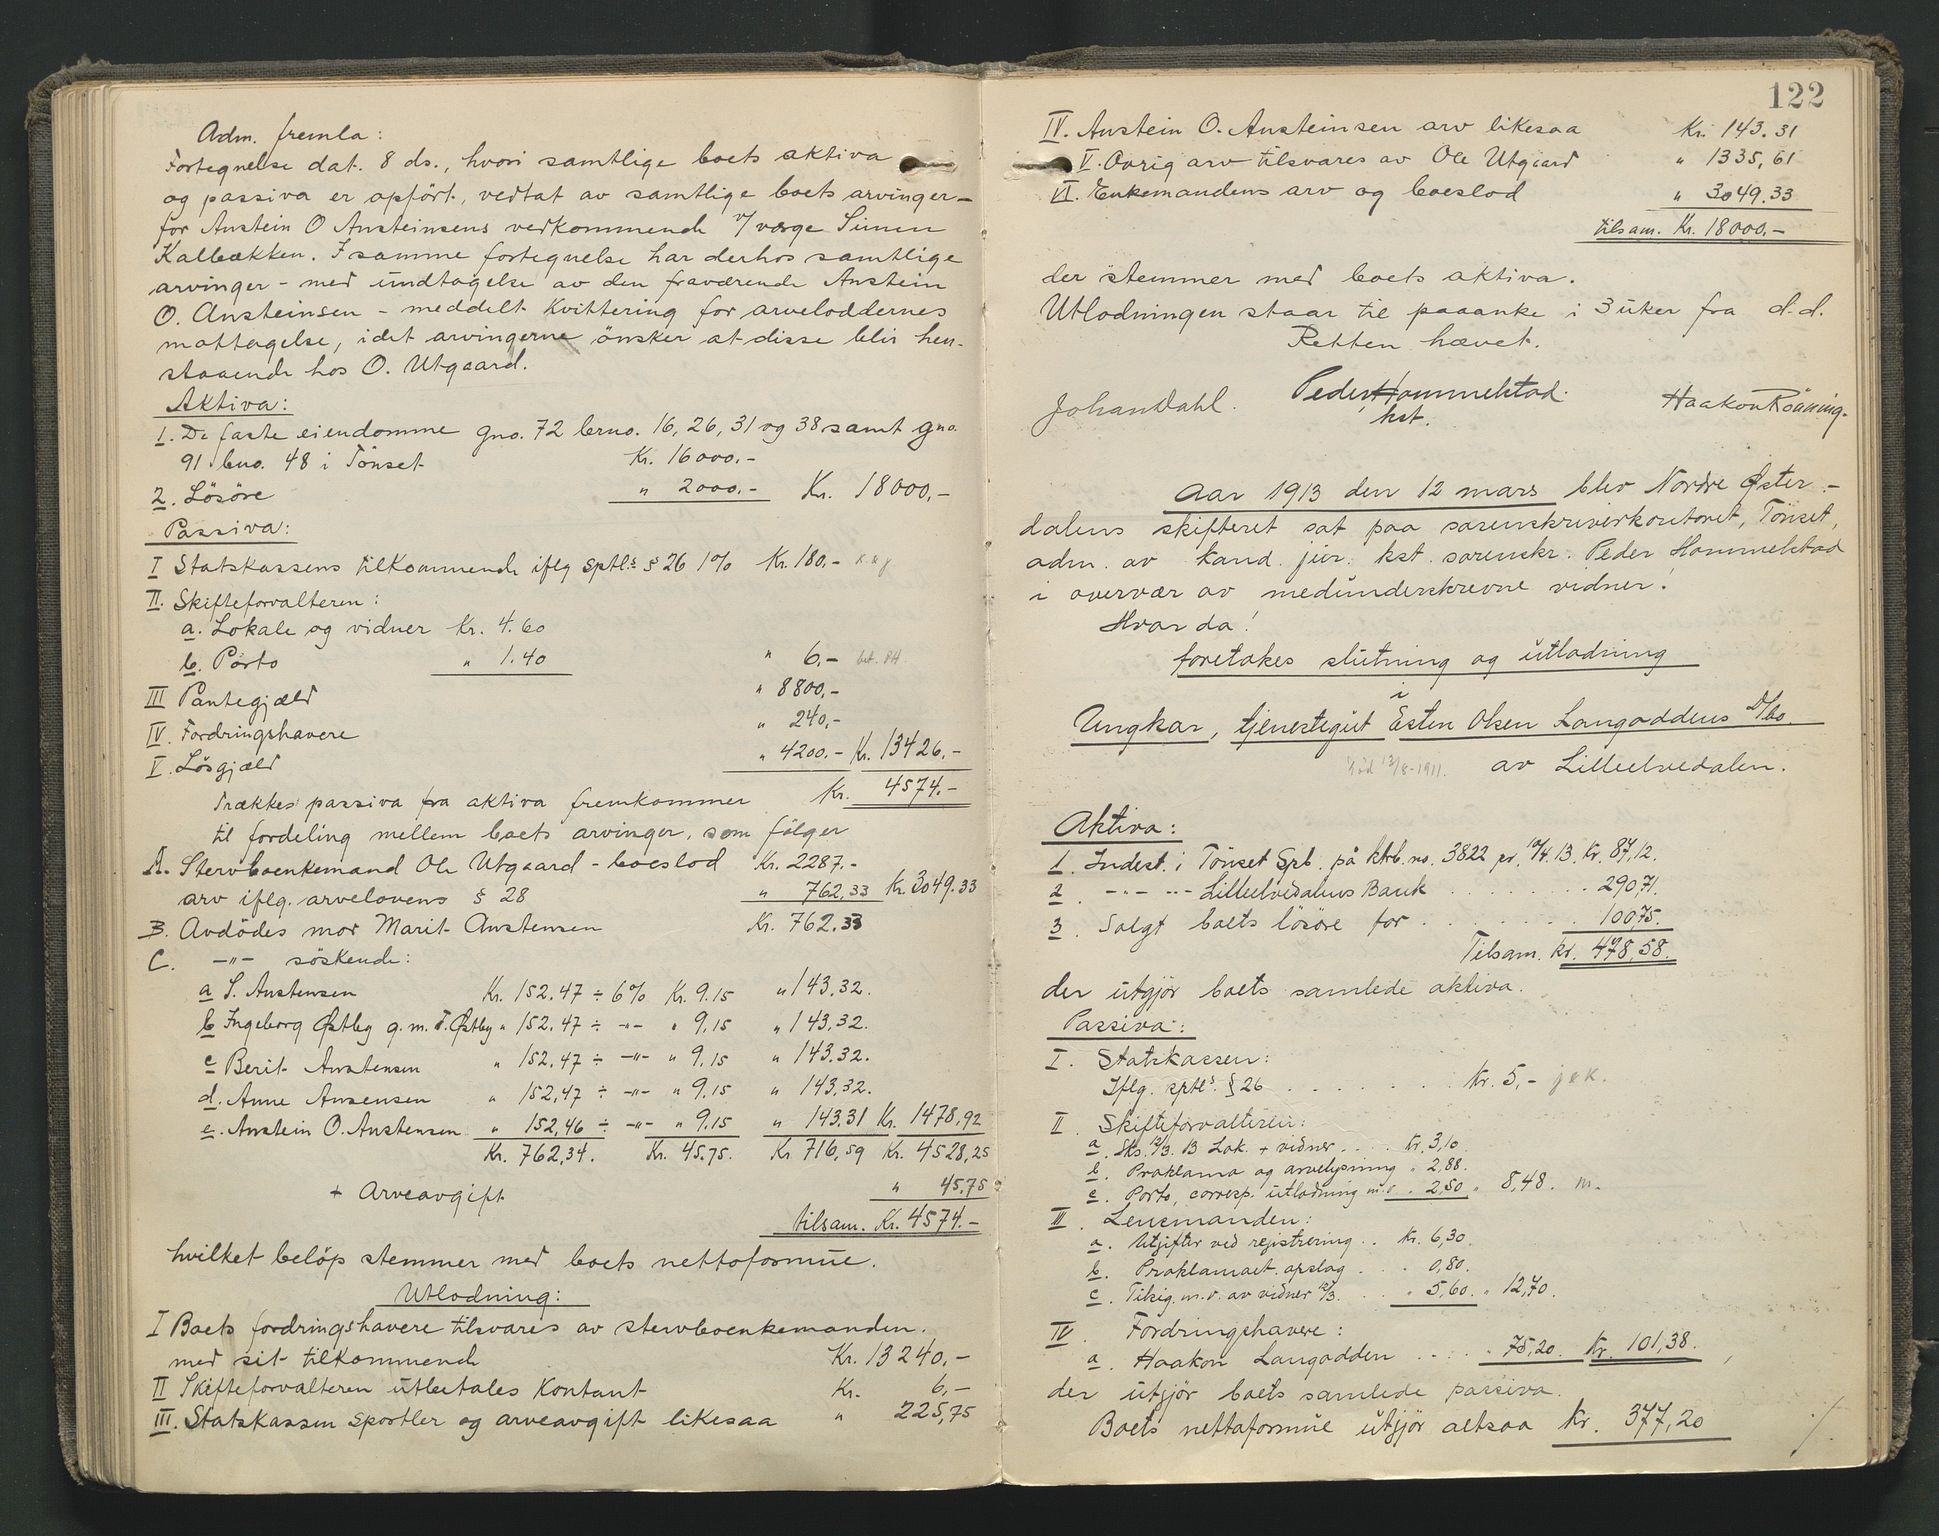 Adm. fremla:
Fortegnelse dat. 8 ds., hvori samtlige boets aktiva
og passiva er opført, vedtat av samtlige boets arvinger –
for Anstein O Ansteinsens vedkommende v/ værge Simen
Kalbækken. I samme fortegnelse har derhos samtlige
arvinger – med undtagelse av den fraværende Anstein
O. Ansteinsen – meddelt kvittering for arveloddernes
mottagelse, idet arvingerne ønsker at disse blir hen-
staaende hos O. Utgaard.
Aktiva:
1. De faste eiendomme gno. 72 brno. 16, 26, 31 og 38 samt gno.
91 bno. 48 i Tönset Kr. 16000.-
2. Lösöre " 2000.- Kr. 18000,-
Passiva:
I Statskassens tilkommende iflg sptl.s § 26 1% Kr. 180.-
II. Skifteforvalteren:
a. Lokale og vidner Kr. 4.60
b. Porto " 1.40 " 6.- bet. PH
III Pantegjæld " 8800,-
IV. Fordringshavere " 240,-
V. Løsgjæld " 4200.- Kr. 13426.-
Trækkes passiva fra aktiva fremkommer Kr. 4574.-
til fordeling mellem boets arvinger, som følger
A. Stervboenkemand Ole Utgaard – boeslod Kr. 2287.-
arv iflg. arvelovens § 28 " 762,33 Kr. 3049.33
B. Avdödes mor Marit Anstensen Kr. 762.33
C. -"- söskende:
a S. Anstensen Kr. 152.47 ÷ 6% Kr. 9.15 " 143.32.
b Ingeborg Østby g.m. T. Østby " 152.47 ÷ -"- " 9.15 " 143.32.
c Berit Anstensen " 152.47 ÷ -"- " 9.15 " 143.32.
d. Anne Ansensen " 152,47 ÷ -"- " 9.15 " 143,32.
e. Anstein O. Anstensen " 152,46 ÷ -"- " 9.15 " 143.31 Kr. 1478,92
Kr. 762,34. Kr. 45.75. Kr. 716,59 Kr. 4528,25
+ Arveavgift " 45.75
tilsam. Kr. 4574.-
hvilket beløp stemmer med boets nettoformue.
Utlodning:
I Boets fordringshavere tilsvares av stervboenkemanden.
med sit tilkommende Kr. 13240,-
II Skifteforvalteren utbetales kontant Kr. 6,-
III. Statskassen sportler og arveavgift likesaa " 225,75
122
IV. Anstein O. Ansteinsen arv likesaa Kr. 143.31
V. Øvrig arv tilsvares av Ole Utgaard " 1335,61
VI. Enkemandens arv og boeslod " 3049.33
tilsam. Kr. 18000.-
der stemmer med boets aktiva.
Utlodningen staar til paaanke i 3 uker fra d.d.
Retten hævet.
Johan Dahl. Peder Hommelstad. Haakon Rönning.
kst.
Aar 1913 den 12 mars blev Nordre Øster-
dalens skifteret sat paa sorenskriverkontoret, Tönset,
adm. av kand. jur. kst. sorenskr. Peder Hommelstad
i overvær av medunderskrevne vidner.
Hvor da!
foretokes slutning og utlodning
i
Ungkar, tjenestegut Esten Olsen Langoddens D/bo.
död 12/8-1911. av Lilleelvedalen.
Aktiva:
1. Indest. i Tönset Sprb. på ktrb. no. 3822 pr. 10/4.13. Kr. 87,12.
2. -"- "- Lilleelvedalens Bank . . . . 290,71.
3. Solgt boets lösöre for . . . . 100,75.
Tilsam. kr. 478,58.
der utgjør boets samlede aktiva.
Passiva:
I. Statskassen:
Iflg. sptl.s § 26 . . . . . . Kr. 5,-
II. Skifteforvalteren:
a. Sks. 12/3. 13 Lok. + vidner . . . Kr. 3,10.
b. Proklama og arvelysning " 2,88.
c. Porto, corresp. utlodning m.v. " 2,50 " 8,48.
III. Lensmanden:
a. Utgifter ved registrering . . Kr. 6,30.
b. Proklamaet. opslag . . . 0,80.
c. Tilsig. m.v. av vidner 12/3. . . " 5,60. " 12,70.
IV. Fordringshavere:
a. Haakon Langodden . . . . 75,20. Kr. 101,38.
der utgjør boets samlede passiva.
Boets nettoformue utgjør altsaa Kr. 377,20